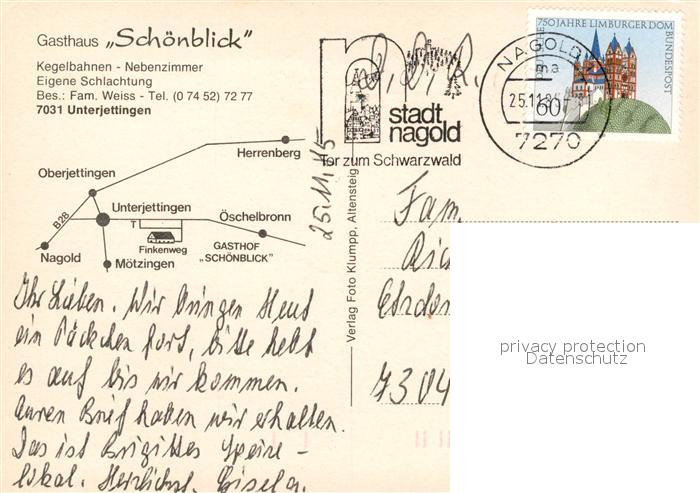 Gasthaus „Schönblick"
Kegelbahnen - Nebenzimmer
Eigene Schlachtung
Bes.: Fam. Weiss - Tel. (0 74 52) 72 77
7031 Unterjettingen
Herrenberg
Oberjettingen
B28
Unterjettingen
T
Öschelbronn
Finkenweg
GASTHOF
„SCHÖNBLICK"
Nagold
Mötzingen
25.11.85
Verlag Foto Klumpp, Altensteig
D.D.R.
stadt
nagold
Tor zum Schwarzwald
NAGOLD
ma
25.11.85
7270
750 JAHRE LIMBURGER DOM
DEUTSCHE BUNDESPOST
60
Fam.
7304
privacy protection
Datenschutz
Ihr Lieben. Wir bringen Heut
ein Päckchen fort, bitte hebt
es auf bis wir kommen.
Euren Brief haben wir erhalten.
Das ist Brigittes Speise-
lokal. Herzlichst Gisela.